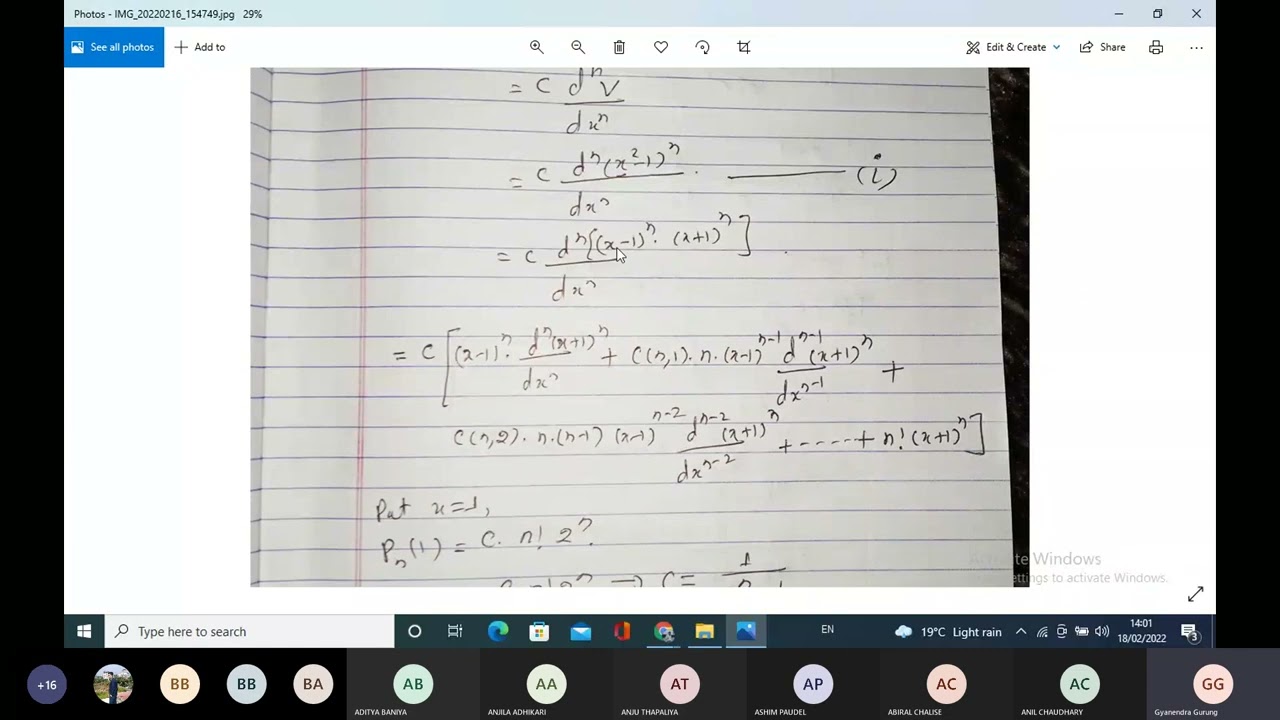 Photos - IMG_20220216_154749.jpg 29%
See all photos
Add to
Edit & Create
Share
= C dⁿV / dxⁿ
= C dⁿ(x²-1)ⁿ / dxⁿ . ——— (i)
= C dⁿ[(x-1)ⁿ. (x+1)ⁿ] / dxⁿ
= C [(x-1)ⁿ. dⁿ(x+1)ⁿ / dxⁿ + C(n,1). n. (x-1)ⁿ⁻¹ dⁿ⁻¹(x+1)ⁿ / dxⁿ⁻¹ +
C(n,2). n.(n-1) (x-1)ⁿ⁻² dⁿ⁻²(x+1)ⁿ / dxⁿ⁻² + ----- + n! (x+1)ⁿ]
Put x=1,
Pₙ(1) = C. n! 2ⁿ.
→ C = 1
Activate Windows
settings to activate Windows.
Type here to search
EN
19°C Light rain
14:01
18/02/2022
3
+16
BB
BB
BA
AB
AA
AT
AP
AC
AC
GG
ADITYA BANIYA
ANJILA ADHIKARI
ANJU THAPALIYA
ASHIM PAUDEL
ABIRAL CHALISE
ANIL CHAUDHARY
Gyanendra Gurung